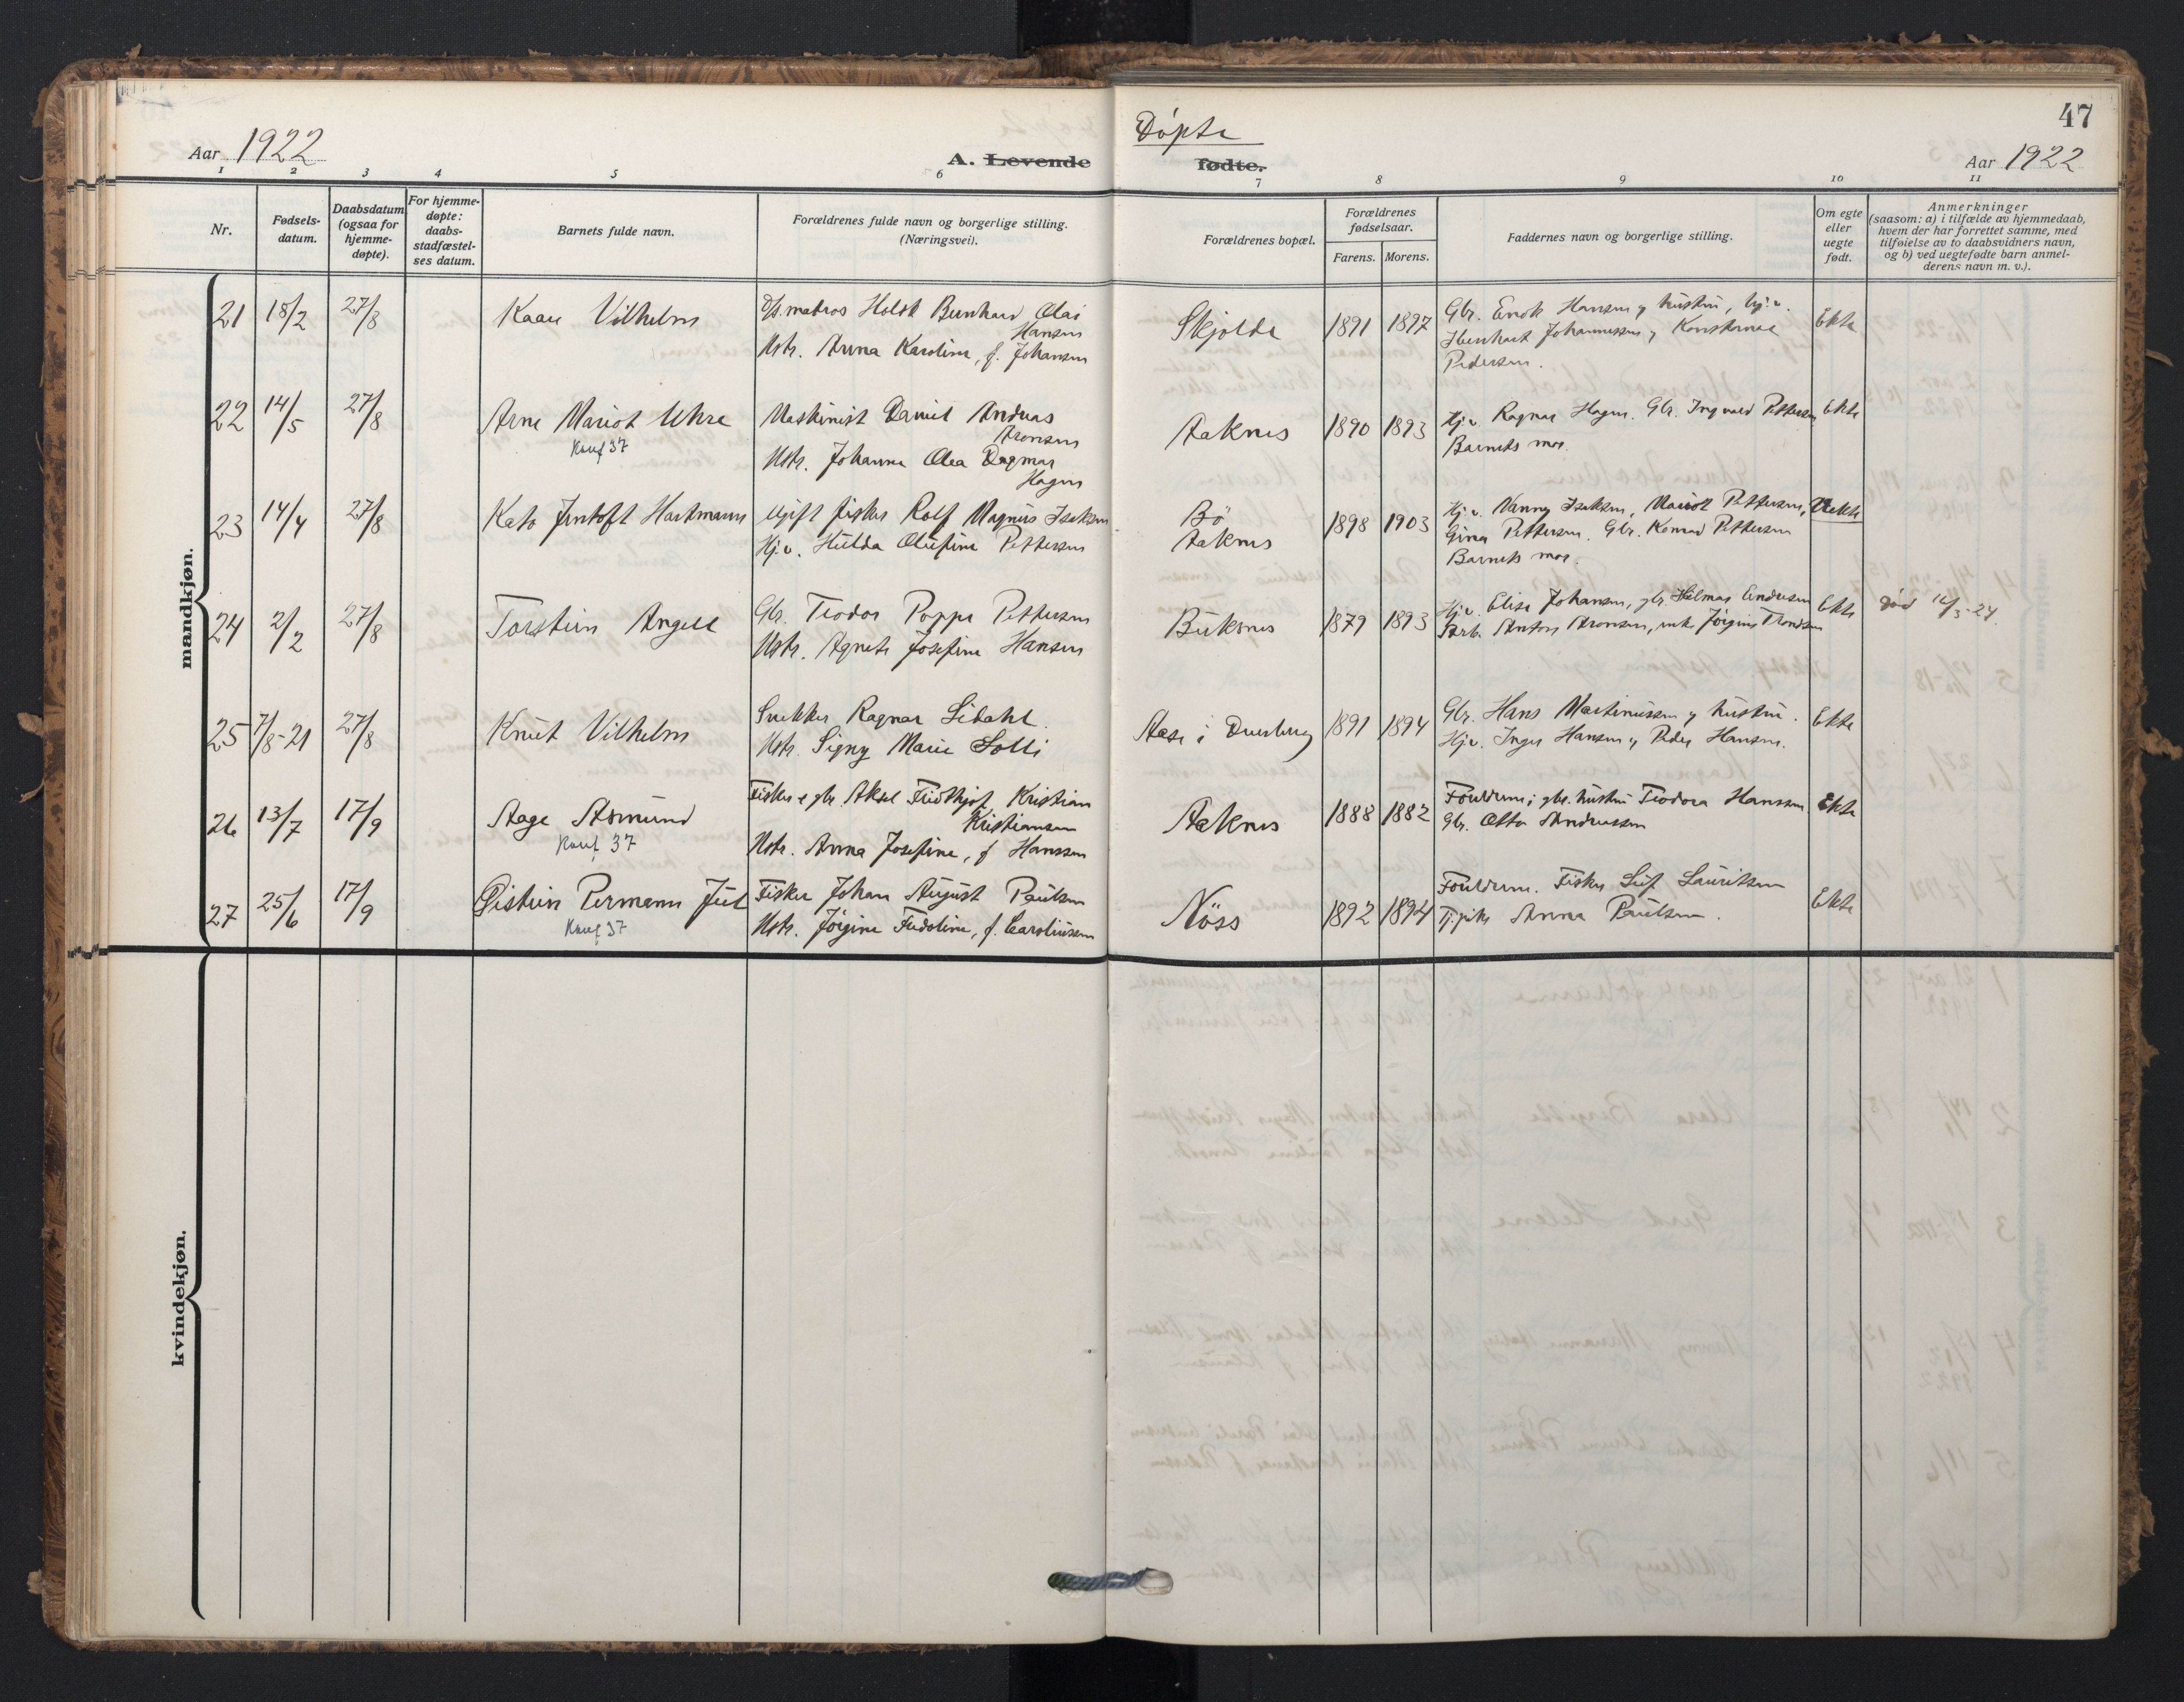 47
Aar 1922
A. Levende
Døpte
fødte.
Aar 1922
1 2 3 4 5 6 7 8 9 10 11
Nr.
Fødsels-
datum.
Daabsdatum
(ogsaa for
hjemme-
døpte).
For hjemme-
døpte:
daabs-
stadfæstel-
ses datum.
Barnets fulde navn.
Forældrenes fulde navn og borgerlige stilling.
(Næringsvei).
Forældrenes bopæl.
Forældrenes
fødselsaar.
Farens. Morens.
Faddernes navn og borgerlige stilling.
Om egte
eller
uegte
født.
Anmerkninger
(saasom: a) i tilfælde av hjemmedaab,
hvem der har forrettet samme, med
tilføielse av to daabsvidners navn,
og b) ved uegtefødte barn anmel-
derens navn m. v.).
mandkjøn.
21 18/2 27/8 Kaare Vilhelm
D/s.matros Holst Bernhard Olai
Hansen
Hstr. Anna Karoline, f. Johansen
Skjolde 1891 1897
Gbr. Enok Hansen og hustru, Ugi.v.
Johannessen og Konstanse
Pedersen.
Ekte
22 14/5 27/8 Arne Mariot Uhre
Konf 37
Maskinist Daniel Andreas
Aronsen
Hstr. Johanna Olea Dagmar
Hagen
Aaknes 1890 1893
Hj.v. Ragnar Hagen. Gbr. Ingvald Pettersen
Barnets mor.
Ekte
23 14/4 27/8 Kato Jentoft Hartmann
Ugift fisker Rolf Magnus Isaksen
Hj.v. Hulda Olufine Pettersen
Bö
Aaknes 1898 1903
Hj.v. Nanny Isaksen, Mariot Pettersen,
Gina Pettersen. Gbr. Konrad Pettersen
Barnets mor.
Uekte
24 2/2 27/8 Torstein Angell
Gbr. Teodor Poppe Pettersen
Hstr. Agnete Josefine Hansen
Buksnes 1879 1893
Hj.v. Elise Johansen, gbr. Hilmar Endresen
Arb. Anton Aronsen, enke Jørgine Trondsen
Ekte
død 16/3-24.
25 7/8-21 27/8 Knut Vilhelm
Snekker Ragnar Lidahl.
Hstr. Signy Marie Solli
Aase i Dverberg 1891 1894
Gbr. Hans Martinussen og hustru.
Hj.v. Inger Hansen og Peder Hansen.
Ekte
26 13/7 17/9 Aage Asmund
Konf 37
Fisker e gbr. Aksel Fridthjof Kristian
Kristiansen
Hstr. Anna Josefine, f Hanssen
Aaknes 1888 1882
Foreldrene; gbr. hustru Teodora Hanssen
Gbr. Otto Andreassen
Ekte
27 25/6 17/9 Øistein Permann Juel
Konf 37
Fisker Johan August Paulsen
Hstr. Jørgine Fredoline, f. Caroliussen
Nöss 1892 1894
Foreldrene. Fisker Leif Lauritsen
Tj.pike Anna Paulsen.
Ekte
kvindekjøn.